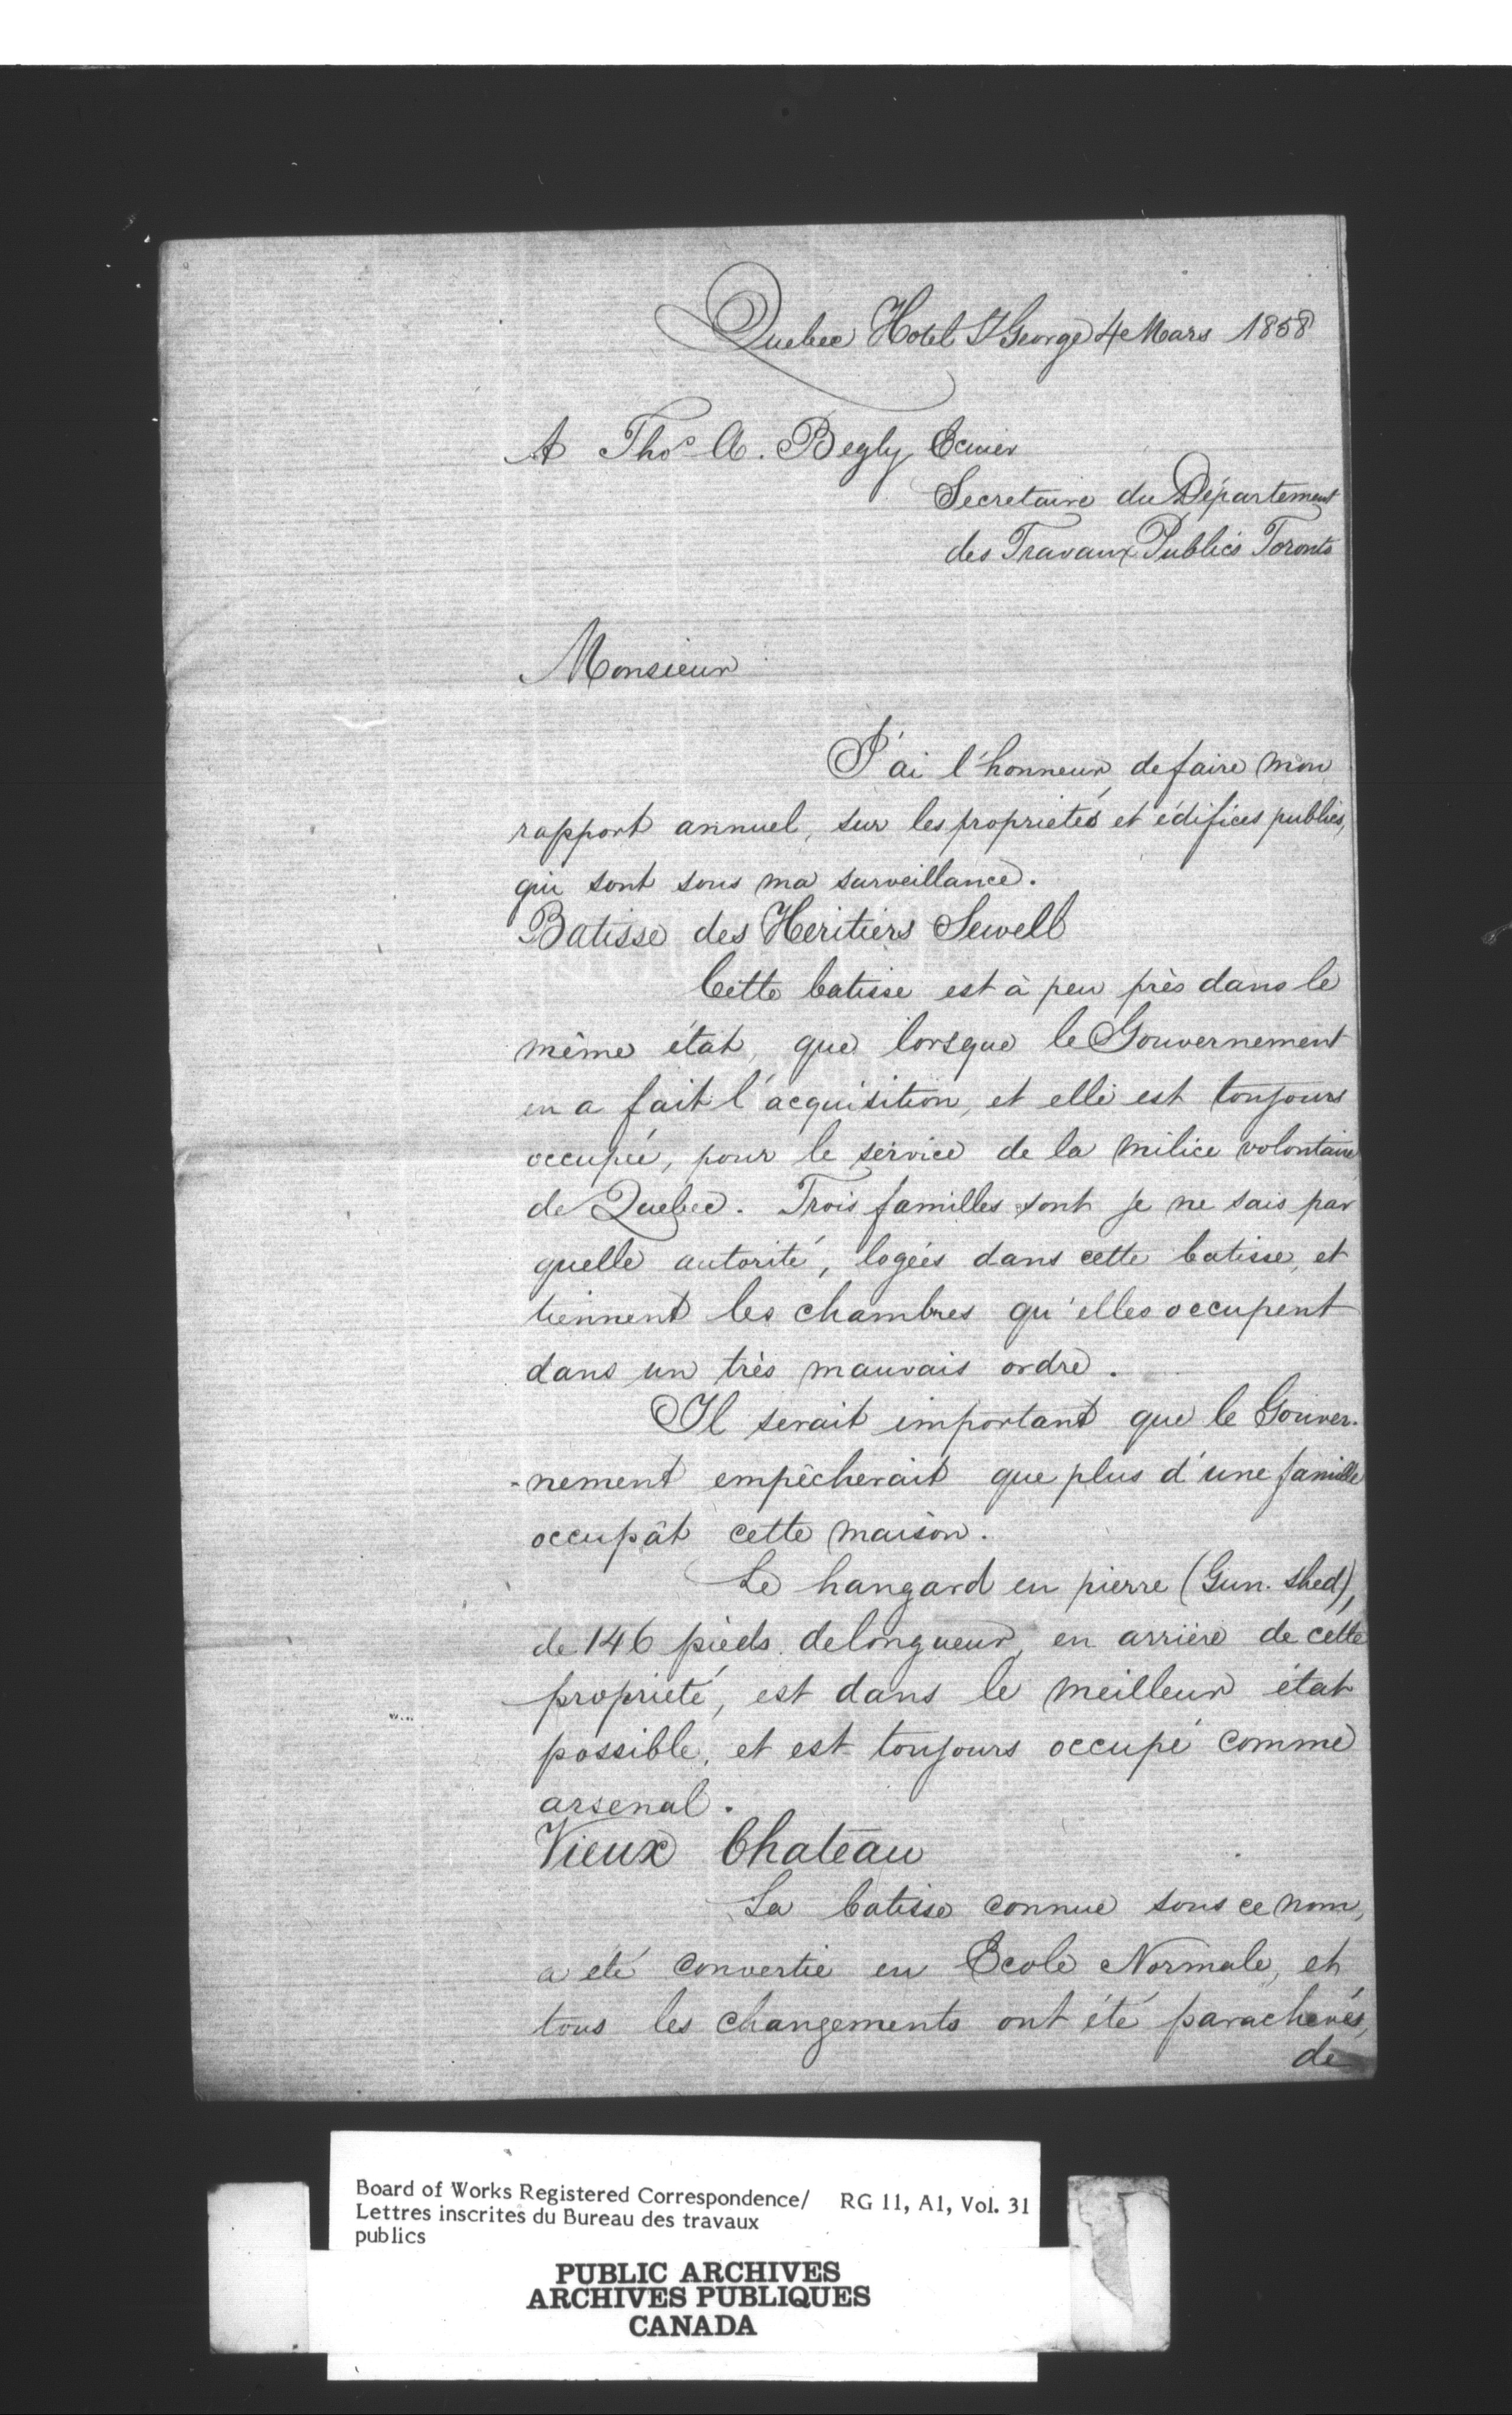 Quebec Hotel St George 4 Mars 1858
A Thos A. Begly Ecuier
Secretaire du Département
des Travaux Publics Toronto
Monsieur
J'ai l'honneur de faire mon
rapport annuel, sur les proprietés et édifices publics,
qui sont sous ma surveillance.
Batisse des Heritiers Sewell
Cette batisse est à peu près dans le
même état, que lorsque le Gouvernement
en a fait l'acquisition, et elle est toujours
occupée, pour le service de la milice volontaire
de Quebec. Trois familles sont je ne sais par
quelle autorité, logées dans cette batisse, et
tiennent les chambres qu'elles occupent
dans un très mauvais ordre.
Il serait important que le Gouver-
-nement empêcherait que plus d'une famille
occupât cette maison.
Le hangard en pierre (Gun. shed),
de 146 pieds de longueur, en arrière de cette
proprieté, est dans le meilleur état
possible, et est toujours occupé comme
arsenal.
Vieux Chateau
La batisse connue sous ce nom,
a été convertie en Ecole Normale, et
tous les changements ont été parachevés,
de
Board of Works Registered Correspondence/ RG 11, A1, Vol. 31
Lettres inscrites du Bureau des travaux
publics
PUBLIC ARCHIVES
ARCHIVES PUBLIQUES
CANADA